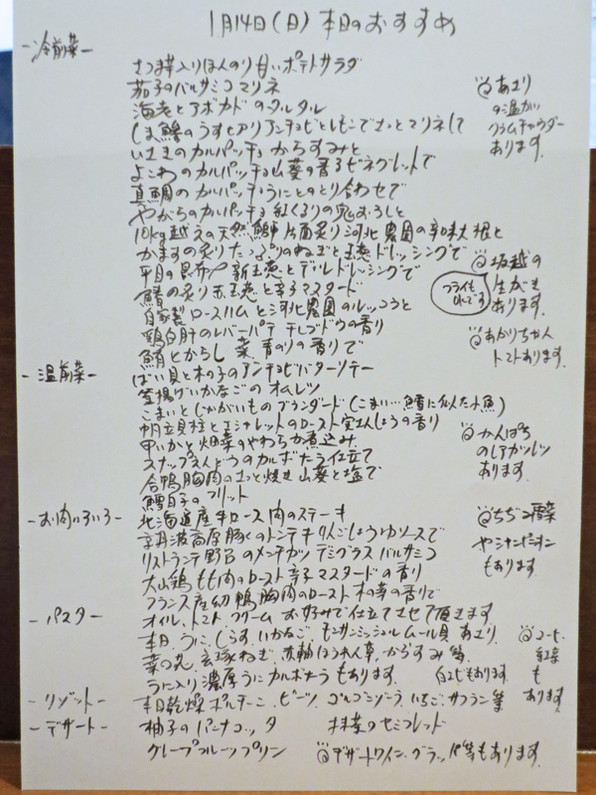 1月14日(日) 本日のおすすめ
-冷前菜-
さつま芋入りほんのり甘いポテトサラダ
茄子のバルサミコマリネ
海老とアボカドのタルタル
しま鯵のうす切アリアンチョビとレモンでさっとマリネして
いさきのカルパッチョ からすみと
よこわのカルパッチョ 山葵の香るビネグレットで
真鯛のカルパッチョ うにとのとり合わせで
やがらのカルパッチョ 紅くるりの鬼おろしと
10kg越えの天然鰤 片面炙り 河北農園の辛味大根と
かますの炙り たっぷりのねぎと玉葱ドレッシングで
平目の昆布〆 新玉葱とディルドレッシングで
鯖の炙り 赤玉葱と辛子マスタード
自家製ロースハムと河北農園のルッコラと
鶏白肝のレバーパテ 干しブドウの香り
鮪とからし菜 青のりの香りで
◎あさり
の温かい
クラムチャウダー
あります。
◎坂越の
生がき
あります。
フライも
OKです
◎あかりちゃん
トマトあります。
-温前菜-
ばい貝と木の子のアンチョビバターソテー
釜揚げいかなごのオムレツ
こまいとじゃがいものブランダード(こまい…鱈に似た小魚)
帆立貝柱とエシャレットのロースト 実山しょうの香り
甲いかと畑菜のやわらか煮込み
スナップえんどうのカルボナーラ仕立て
合鴨胸肉のさっと焼き 山葵と塩で
鱈白子のフリット
◎かんぱち
のレアカツレツ
あります。
-お肉いろいろ-
北海道産牛ロース肉のステーキ
京丹波高原豚くのトンテキ りんごしょうゆソースで
リストランテ野呂のメンチカツ デミグラスバルサミコ
大山鶏もも肉のロースト 辛子マスタードの香り
フランス産幼鴨胸肉のロースト 木の芽の香りで
◎ちぢみ雪菜
やシャンピニオン
もあります。
-パスタ-
オイル、トマト、クリーム お好みで仕立てさせて頂きます
本日 うに、しらす、いかなご、モンサンミッシェルムール貝、あさり、
菜の花、玄琢ねぎ、赤軸ほうれん草、からすみ等。
うに入り濃厚うにカルボナーラもあります。 白エビもあります。
-リゾット-
本日乾燥ポルチーニ、ビーツ、ゴルゴンゾーラ、いちご、サフラン等
◎コーヒー
紅茶
も
あります。
-デザート-
柚子のパンナコッタ 抹茶のセミフレッド
グレープフルーツプリン ◎デザートワイン、グラッパ等もあります。